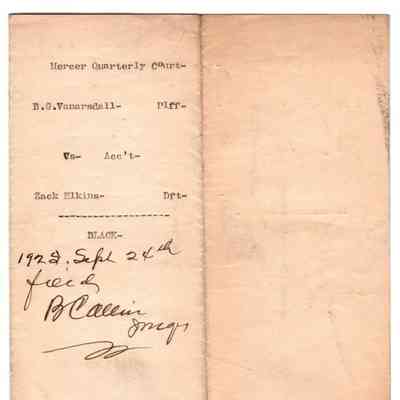 Mercer Quarterly Court-
B.G.Vanarsdall- Plff-
Vs- Acc't-
Zack Elkins- Dft-
BLACK-
1922. Sept 24th
filed
B Collin